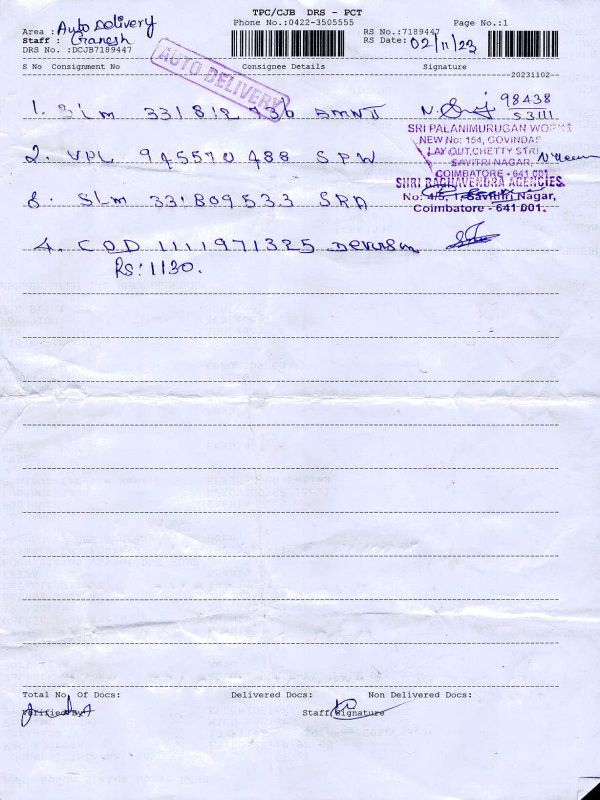 TPC/CJB DRS - PCT
Area : Auto Delivery Phone No.:0422-3505555 RS No.:7189447 Page No.:1
Staff : Ganesh RS Date: 02/11/23
DRS No. :DCJB7189447
AUTO DELIVERY
S No Consignment No Consignee Details Signature
--20231102--
1. SLM 331812 936 98438
53111
SRI PALANIMURUGAN WORKS
NEW No: 154, GOVINDAS
LAY OUT, CHETTY STR
2. VPL 945570488 SPW SAVITRI NAGAR,
COIMBATORE - 641 001
SHRI RAGHAVENDRA AGENCIES.
3. SLM 331809533 SRA No: 4/5, 1, Savithri Nagar,
Coimbatore - 641 001.
4. COD 1111971325
RS: 1130.
Total No. Of Docs: Delivered Docs: Non Delivered Docs:
Verified By Staff Signature